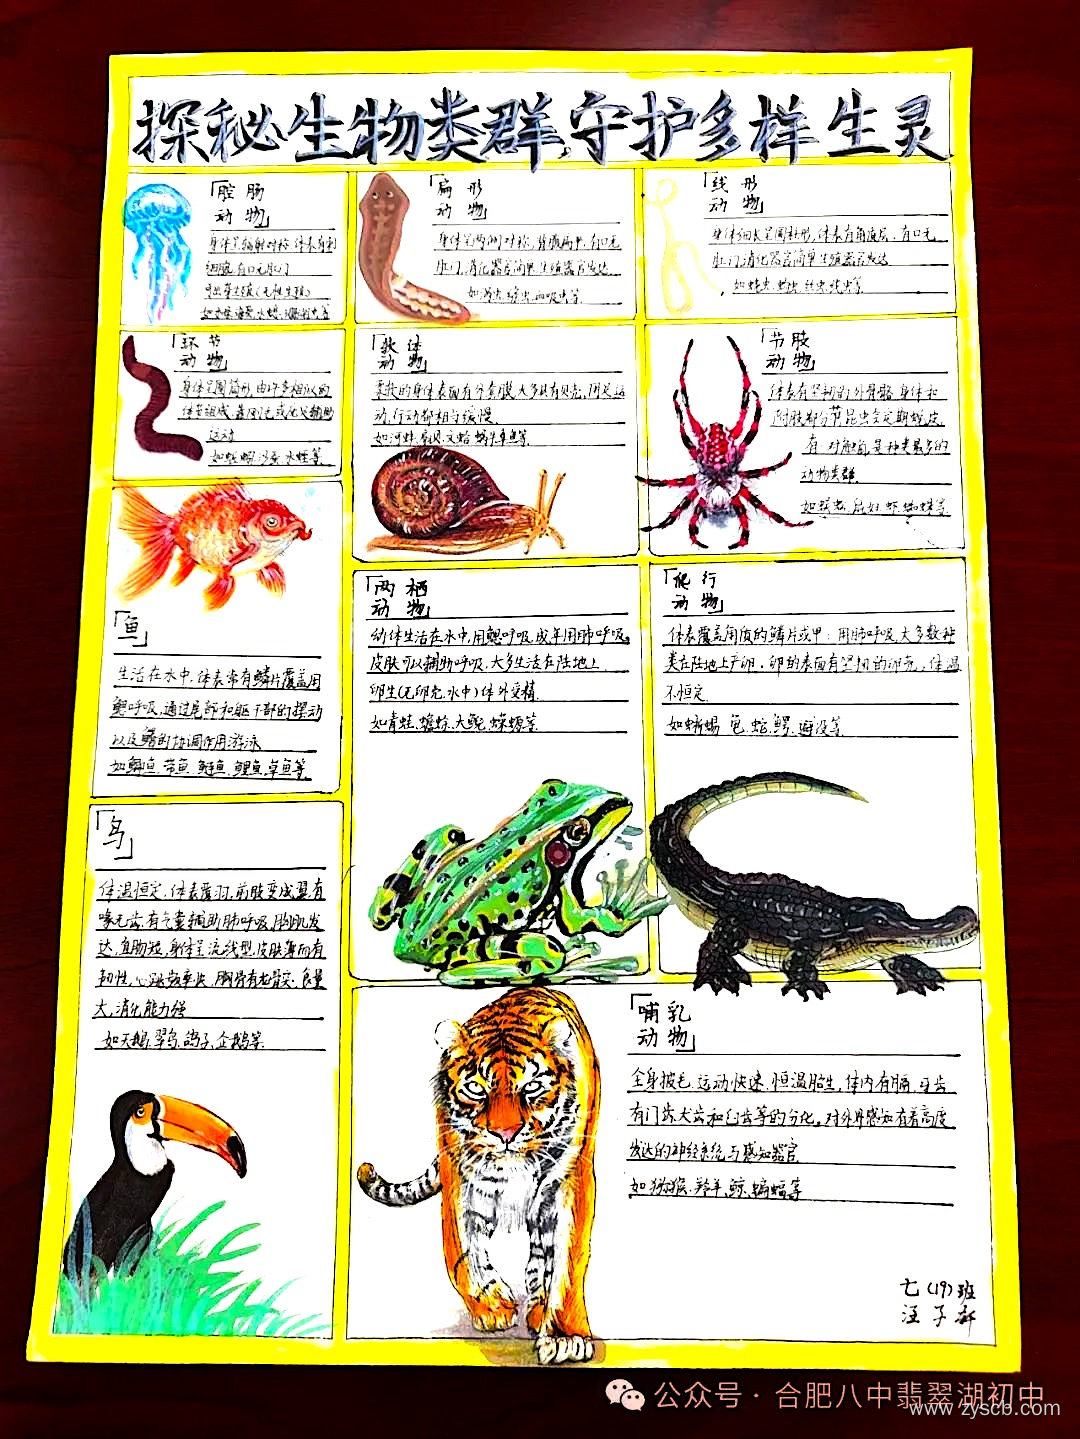 探秘生物类群,守护多样生灵
「腔肠
动物」
身体呈辐射对称,体表有刺
细胞,有口无肛门
可出芽生殖(无性生殖)
如水母、海葵、水螅、珊瑚虫等
「扁形
动物」
身体呈两侧对称,背腹扁平,有口无
肛门,消化器官简单,生殖器官发达
如涡虫、绦虫、血吸虫等
「线形
动物」
身体细长呈圆柱形,体表有角质层,有口有
肛门,消化器官简单,生殖器官发达
如蛔虫、蛲虫、丝虫、线虫等
「环节
动物」
身体呈圆筒形,由许多相似的
体节组成,靠刚毛或疣足辅助
运动
如蚯蚓、沙蚕、水蛭等
「软体
动物」
柔软的身体表面有外套膜,大多具有贝壳,用足运
动,行动都相当缓慢
如河蚌、扇贝、文蛤、蜗牛、章鱼等
「节肢
动物」
体表有坚韧的外骨骼,身体和
附肢都分节,昆虫会定期蜕皮
有一对触角,是种类最多的
动物类群
蜘蛛等
「鱼」
生活在水中,体表常有鳞片覆盖,用
鳃呼吸,通过尾部和躯干部的摆动
以及鳍的协调作用游泳
如鲫鱼、带鱼、鲢鱼、鲤鱼、草鱼等
「两栖
动物」
幼体生活在水中,用鳃呼吸,成年用肺呼吸,
皮肤可以辅助呼吸,大多生活在陆地上
卵生(无卵壳,水中)体外受精
如青蛙、蟾蜍、大鲵、蝾螈等
「爬行
动物」
体表覆盖角质的鳞片或甲;用肺呼吸,大多数种
类在陆地上产卵,卵的表面有坚韧的卵壳,体温
不恒定
如蜥蜴、龟、蛇、鳄、避役等
「鸟」
体温恒定,体表覆羽,前肢变成翼,有
喙无齿,有气囊辅助肺呼吸,胸肌发
达,直肠短,身体呈流线型,皮肤薄而有
韧性,心跳频率快,胸骨有龙骨突,食量
大,消化能力强
如天鹅、翠鸟、鸽子、企鹅等
「哺乳
动物」
全身披毛,运动快速,恒温胎生,体内有膈,牙齿
有门齿、犬齿和臼齿等的分化。对外界感知有着高度
发达的神经系统与感知器官
如猕猴、羚羊、鲸、蝙蝠等
七(19)班
汪子轩
公众号·合肥八中翡翠湖初中
www.zyscb.com